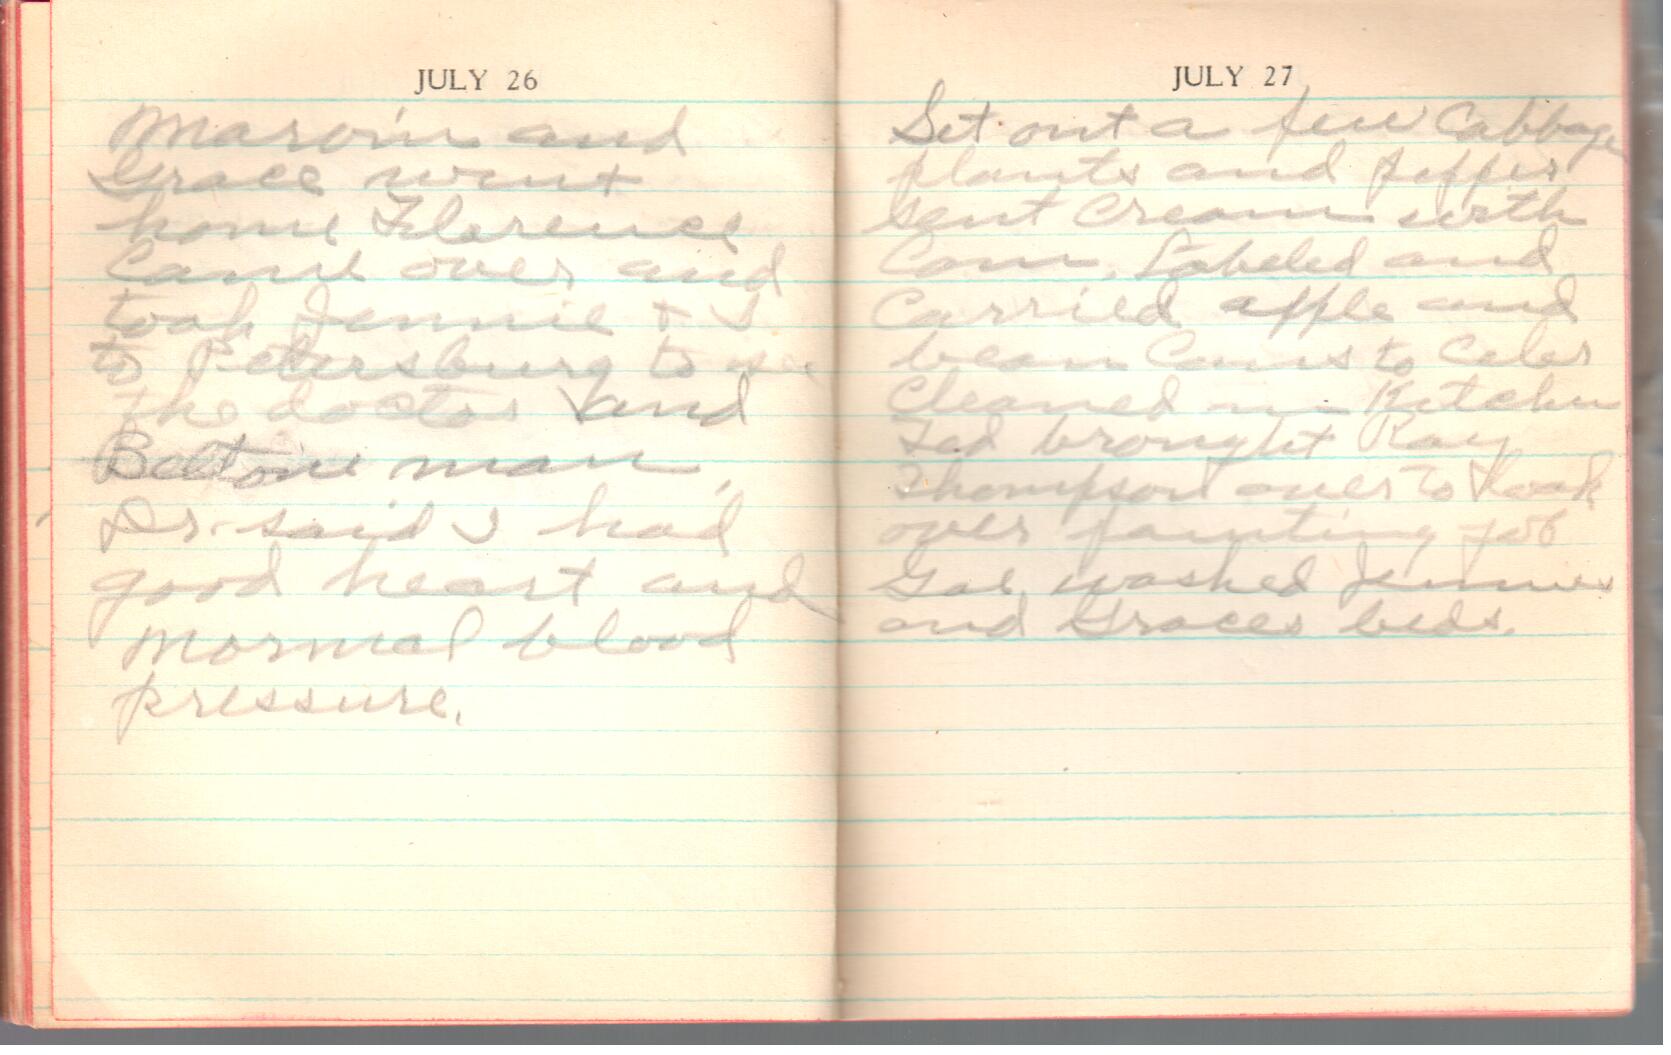 JULY 26
Marvin and
Grace went
home Florence
Came over and
took Jennie + I
to Petersburg to see
the doctor and
Beltone man.
Dr. said I had
good heart and
normal blood
pressure.
JULY 27
Set out a few Cabbage
plants and pepper
Sent Cream with
Com. Labeled and
Carried apple and
bean Cans to Celer
Cleaned in Kitchen
Ted brought Ray
Thompson over to look
over painting job
Gae washed Jennies
and Graces beds.